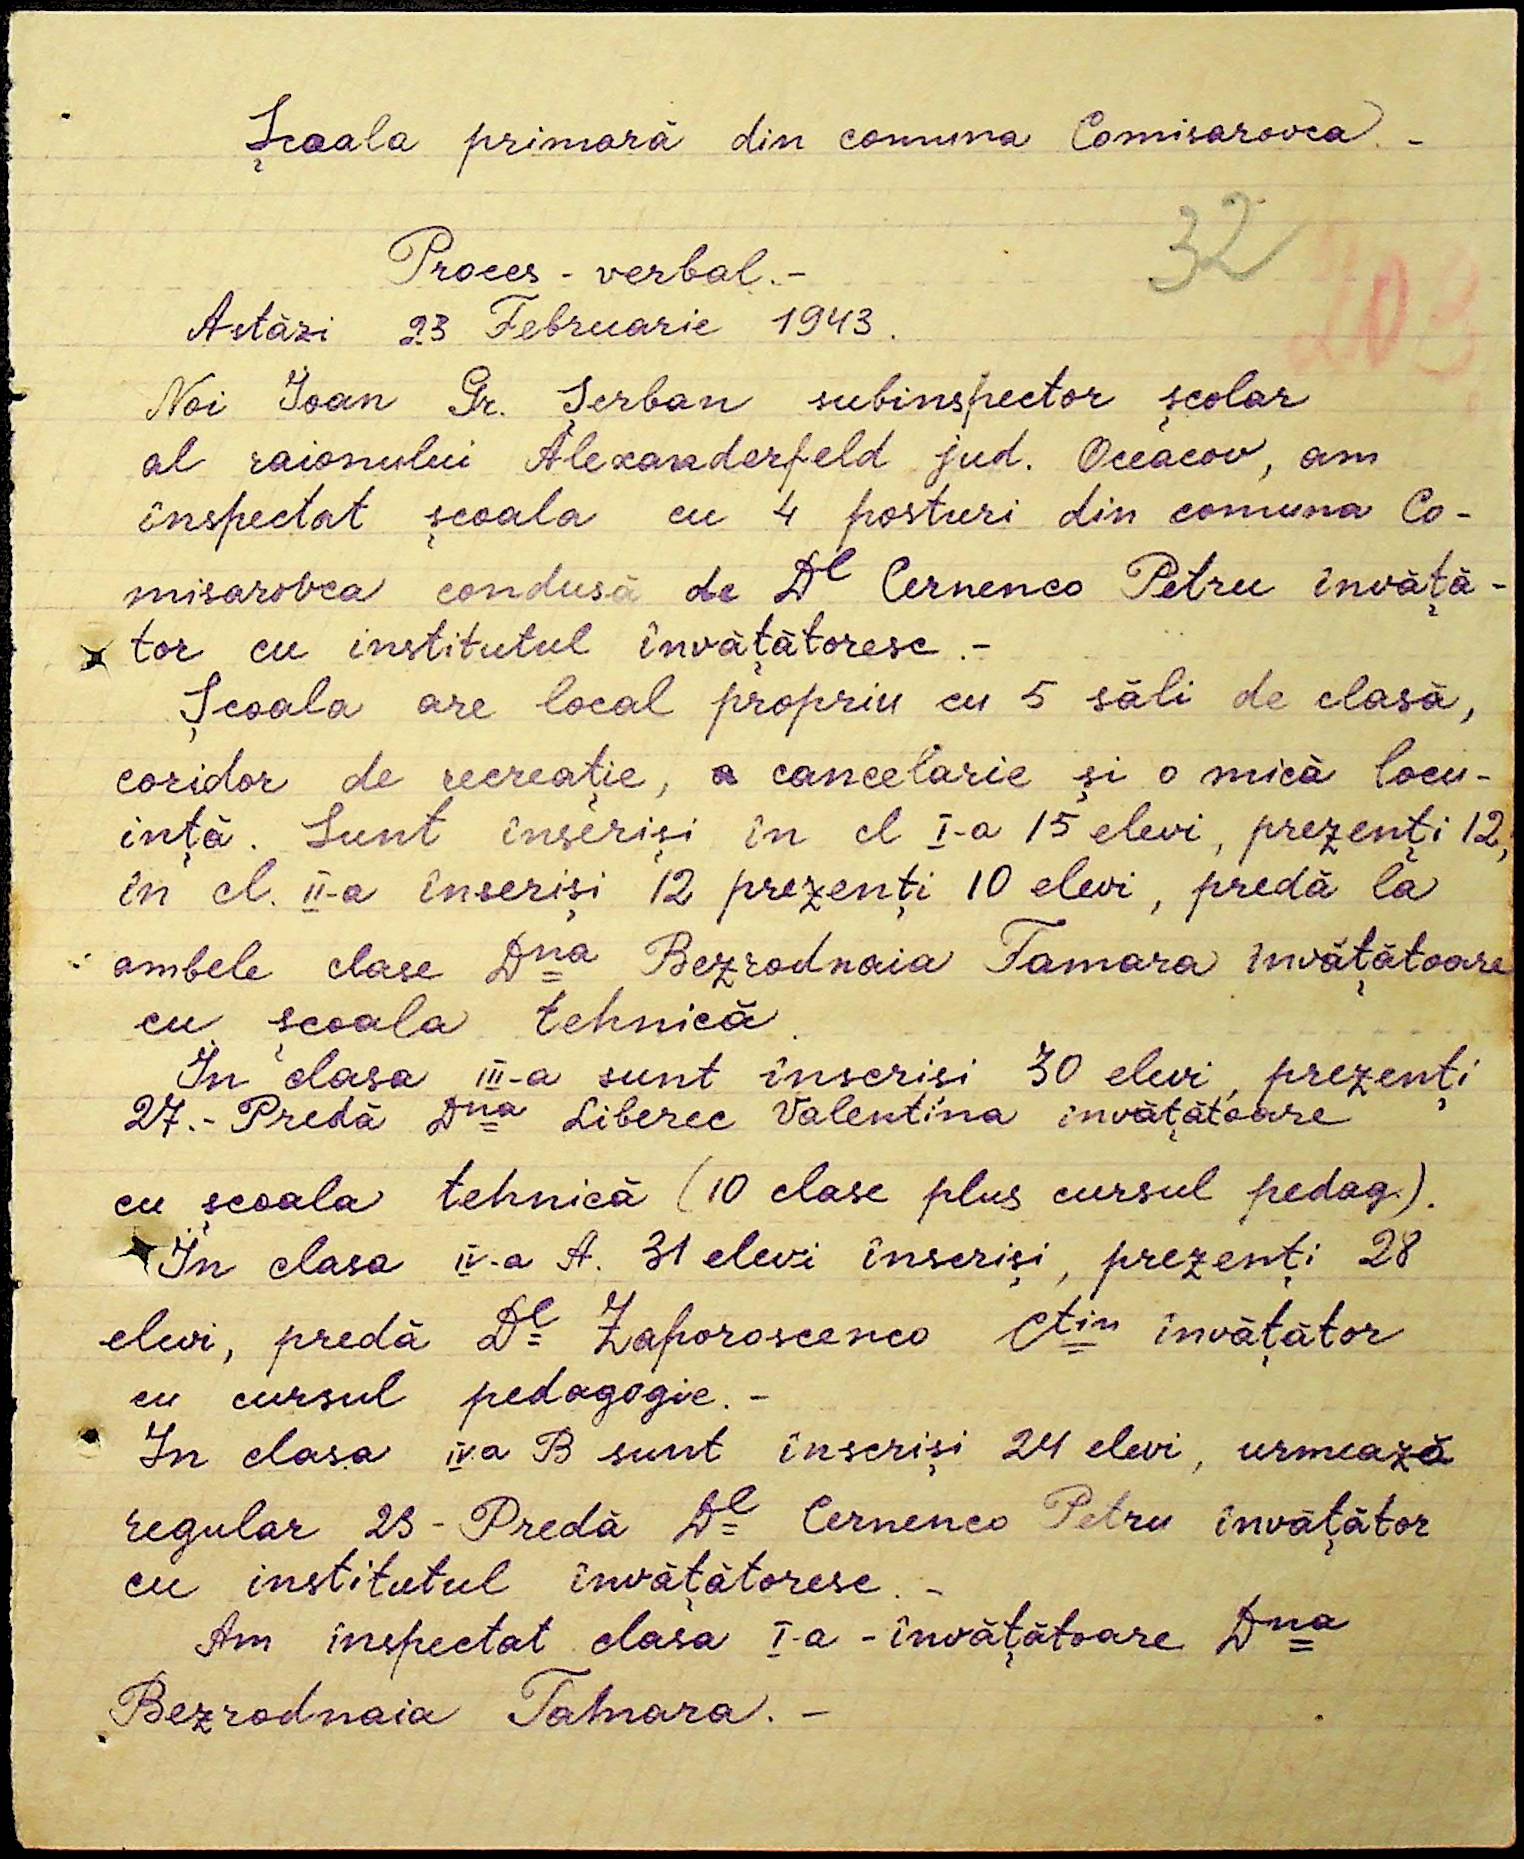 Școala primară din comuna Comisarovca. -
32
203
Proces - verbal. -
Astăzi 23 Februarie 1943.
Noi Ioan Gr. Șerban subinspector școlar
al raionului Alexanderfeld jud. Oceacov, am
înspectat școala cu 4 posturi din comuna Co-
misarovca condusă de Dl Cernenco Petru învăță-
tor cu institutul învățătoresc. -
Școala are local propriu cu 5 săli de clasă,
coridor de recreație, a cancelarie și o mică locu-
ință. Sunt înscriși în cl I-a 15 elevi, prezenți 12,
în cl. II-a înscriși 12 prezenți 10 elevi, predă la
ambele clase Dna Bezrodnaia Tamara învățătoare
cu școala tehnică.
În clasa III-a sunt înscrisi 30 elevi, prezenți
27. - Predă Dna Liberec Valentina învățătoare
cu școala tehnică (10 clase plus cursul pedag.).
În clasa IV-a A. 31 elevi înscriși, prezenți 28
elevi, predă Dl Zaporoscenco Ctin învățător
cu cursul pedagogic. -
In clasa IV-a B sunt înscriși 24 elevi, urmează
regular 23 - Predă Dl Cernenco Petru învățător
cu institutul învățătoresc. -
Am înspectat clasa I-a - învățătoare Dna
Bezrodnaia Tamara. -